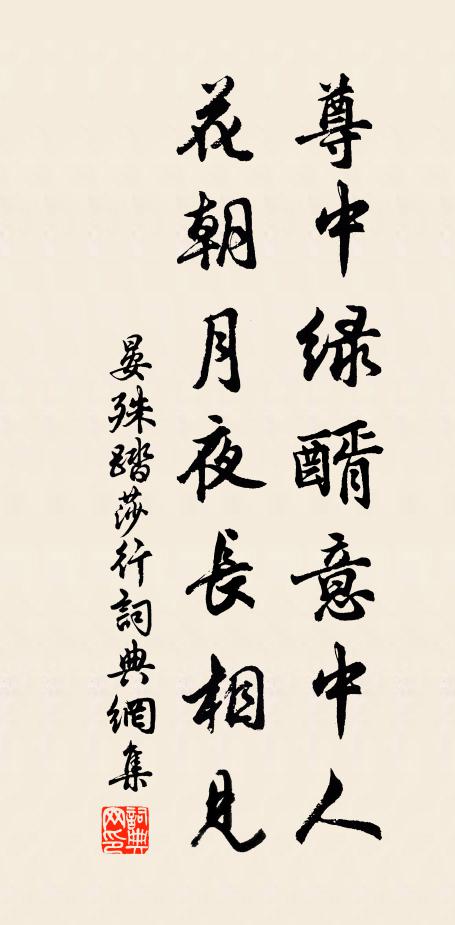 尊中緑醑意中人
花朝月夜長相見
晏殊踏莎行詞典網集
詞典网印